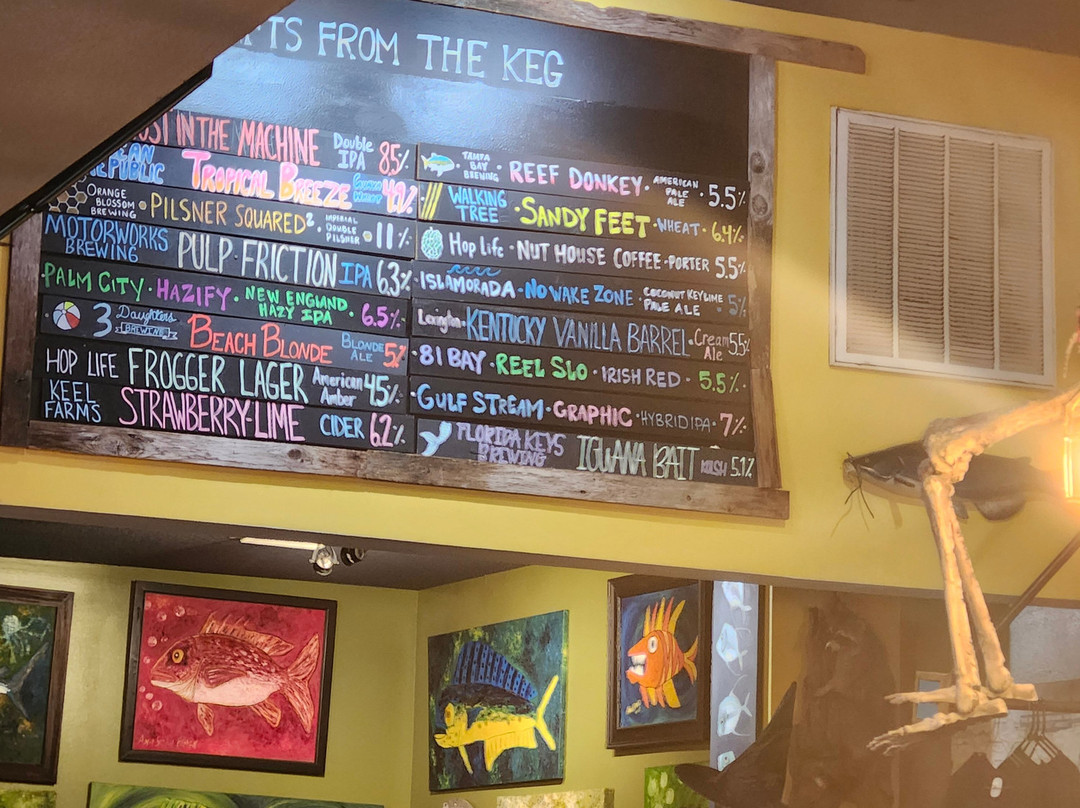 FROM THE KEG
IN THE MACHINE Double IPA 8.5%
TROPICAL BREEZE 4.0%
ORANGE BLOSSOM BREWING • PILSNER SQUARED² IMPERIAL DOUBLE PILSNER • 11%
MOTORWORKS BREWING PULP FRICTION IPA 6.3%
PALM CITY • HAZIFY • NEW ENGLAND HAZY IPA • 6.5%
3 Daughters BREWING BEACH BLONDE BLONDE ALE 5%
HOP LIFE FROGGER LAGER American Amber 4.5%
KEEL FARMS STRAWBERRY-LIME CIDER 6.2%
TAMPA BAY BREWING REEF DONKEY • AMERICAN PALE ALE • 5.5%
WALKING TREE • SANDY FEET • WHEAT • 6.4%
Hop Life • NUT HOUSE COFFEE • PORTER 5.5%
• ISLAMORADA • NO WAKE ZONE • COCONUT KEY LIME PALE ALE 5%
Lexington • KENTUCKY VANILLA BARREL • Cream Ale 5.5%
• 81 BAY • REEL SLO • IRISH RED • 5.5%
• GULF STREAM • GRAPHIC • HYBRID IPA • 7%
FLORIDA KEYS BREWING IGUANA BAIT KOLSH 5.1%